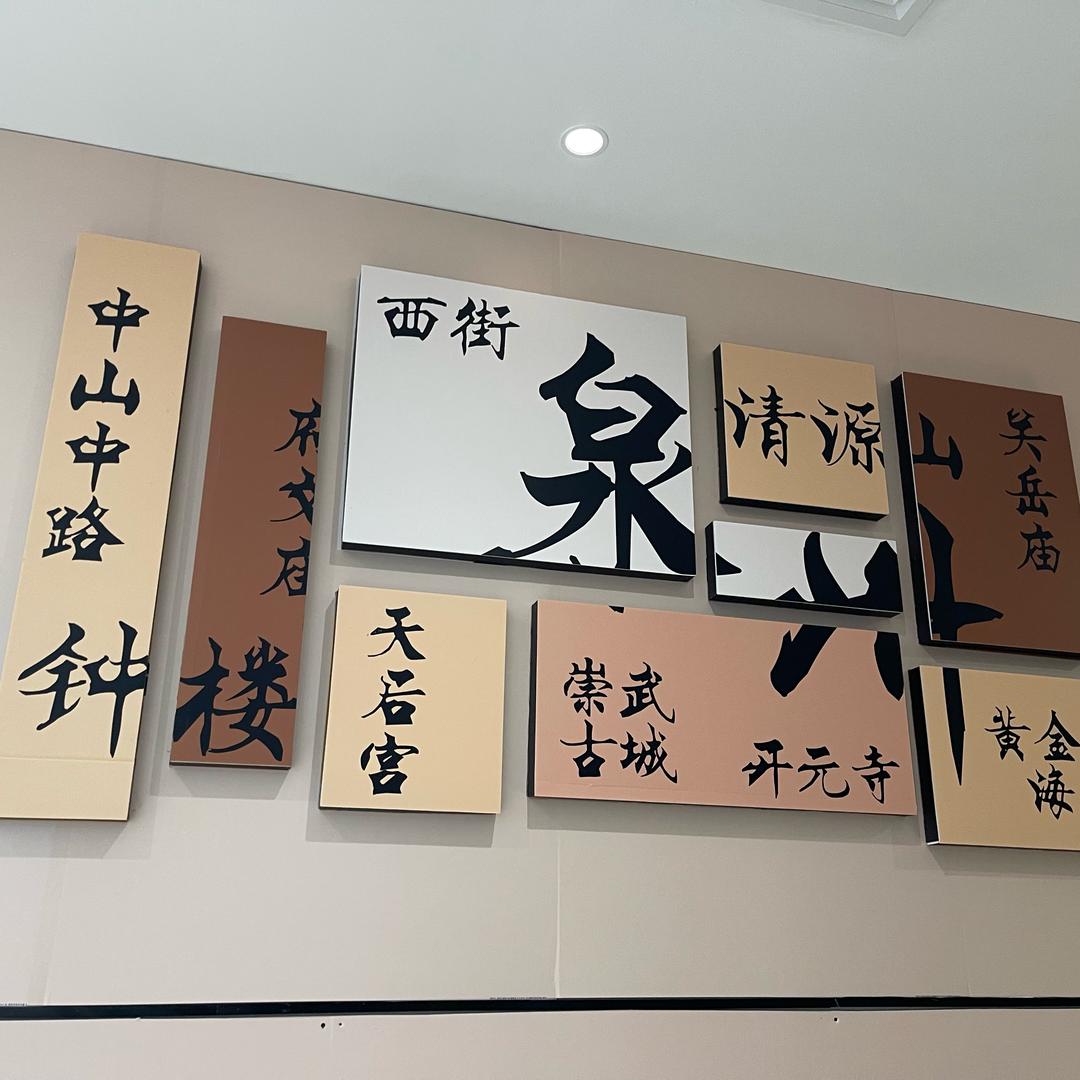 中山中路
钟楼
府文庙
西街
泉州
清源山
关岳庙
天后宫
崇武
古城
开元寺
黄金
海